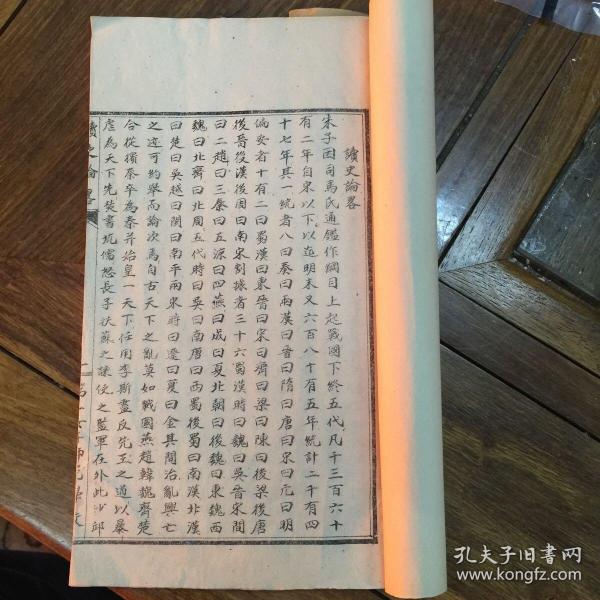 讀史論畧
朱子因司馬氏通鑑作綱目上起戰國下終五代凡千三百六十
有二年自宋以下以迄明末又六百八十有五年統計二千有四
十七年其一統者八曰秦曰兩漢曰晉曰隋曰唐曰宋曰元曰明
偏安者十有二曰蜀漢曰東晉曰宋曰齊曰梁曰陳曰後梁後唐
後晉後漢後周曰南宋割據者三十六蜀漢時曰魏曰吳晉宋間
曰二趙曰三秦曰五涼曰四燕曰成曰夏北朝曰後魏曰東魏西
魏曰北齊曰北周五代時曰吳曰南唐曰西蜀後蜀曰南漢北漢
曰楚曰吳越曰閩曰南平兩宋時曰遼曰夏曰金其間治亂興亡
之迹可約舉而論次焉自古天下之亂莫如戰國燕趙韓魏齊楚
合從擯秦卒為秦并始皇一天下任用李斯盡反先王之道以暴
虐為天下先焚書坑儒怒長子扶蘇之諫使之監軍在外此沙邱
讀史論畧
孔夫子旧书网
www.kongfz.com